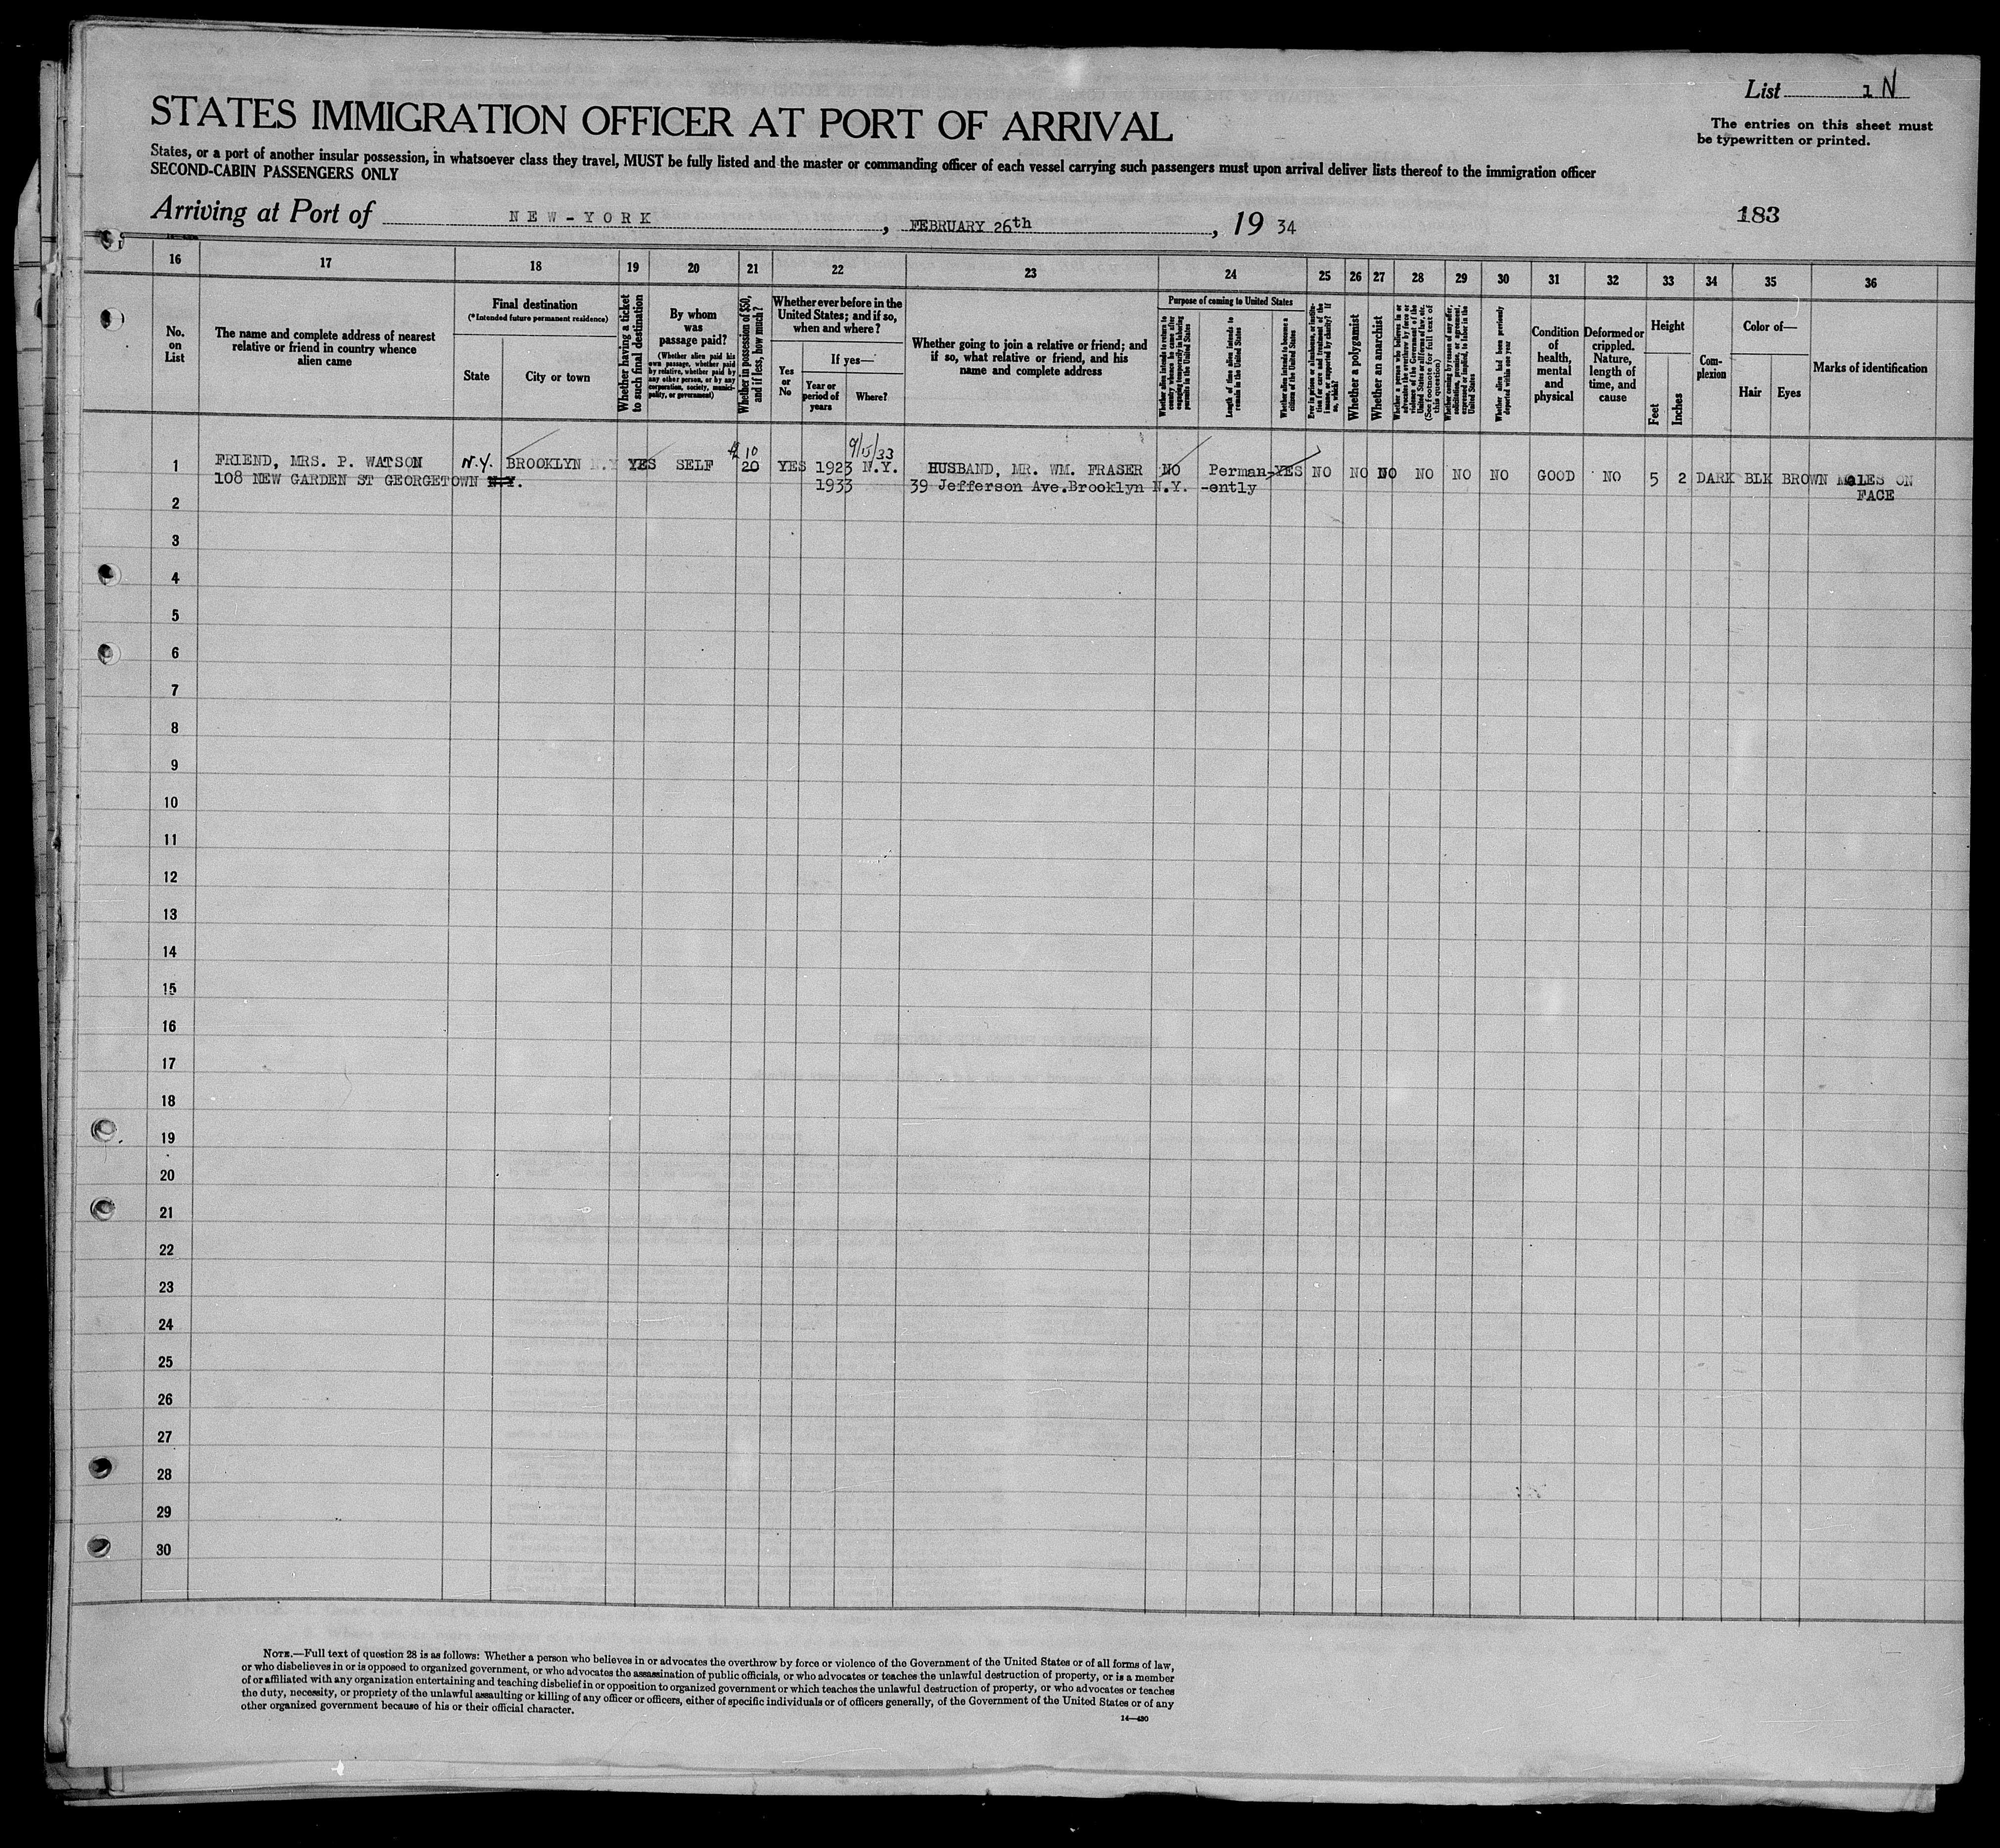 List 1 N
The entries on this sheet must
be typewritten or printed.
STATES IMMIGRATION OFFICER AT PORT OF ARRIVAL
States, or a port of another insular possession, in whatsoever class they travel, MUST be fully listed and the master or commanding officer of each vessel carrying such passengers must upon arrival deliver lists thereof to the immigration officer
SECOND-CABIN PASSENGERS ONLY
Arriving at Port of NEW-YORK, FEBRUARY 26th, 19 34
183
16 17 18 19 20 21 22 23 24 25 26 27 28 29 30 31 32 33 34 35 36
No.
on
List
The name and complete address of nearest
relative or friend in country whence
alien came
Final destination
(*Intended future permanent residence)
State
City or town
Whether having a ticket
to such final destination
By whom
was
passage paid?
(Whether alien paid his
own passage, whether paid
by relative, whether paid by
any other person, or by any
corporation, society, munici-
pality, or government)
Whether in possession of $50,
and if less, how much?
Whether ever before in the
United States; and if so,
when and where?
Yes
or
No
If yes—
Year or
period of
years
Where?
Whether going to join a relative or friend; and
if so, what relative or friend, and his
name and complete address
Purpose of coming to United States
Whether alien intends to return to
country whence he came after
engaging temporarily in laboring
pursuits in the United States
Length of time alien intends to
remain in the United States
Whether alien intends to become a
citizen of the United States
Ever in prison or almshouse, or institu-
tion for care and treatment of the
insane, or supported by charity? If
so, which?
Whether a polygamist
Whether an anarchist
Whether a person who believes in or
advocates the overthrow by force or
violence of the Government of the
United States or all forms of law, etc.
(See footnote for full text of
this question)
Whether coming by reason of any offer,
solicitation, promise, or agreement,
expressed or implied, to labor in the
United States
Whether alien had been previously
deported within one year
Condition
of
health,
mental
and
physical
Deformed or
crippled.
Nature,
length of
time, and
cause
Height
Feet
Inches
Com-
plexion
Color of—
Hair
Eyes
Marks of identification
10 9/15/33
1 FRIEND, MRS. P. WATSON N.Y. BROOKLYN N.Y YES SELF 20 YES 1923 N.Y. HUSBAND, MR. WM. FRASER NO Perman- YES NO NO NO NO NO NO GOOD NO 5 2 DARK BLK BROWN MOLES ON
108 NEW GARDEN ST GEORGETOWN N.Y. 1933 39 Jefferson Ave.Brooklyn N.Y. -ently FACE
2
3
4
5
6
7
8
9
10
11
12
13
14
15
16
17
18
19
20
21
22
23
24
25
26
27
28
29
30
NOTE.—Full text of question 28 is as follows: Whether a person who believes in or advocates the overthrow by force or violence of the Government of the United States or of all forms of law,
or who disbelieves in or is opposed to organized government, or who advocates the assassination of public officials, or who advocates or teaches the unlawful destruction of property, or is a member
of or affiliated with any organization entertaining and teaching disbelief in or opposition to organized government or which teaches the unlawful destruction of property, or who advocates or teaches
the duty, necessity, or propriety of the unlawful assaulting or killing of any officer or officers, either of specific individuals or of officers generally, of the Government of the United States or of any
other organized government because of his or their official character.
14—430